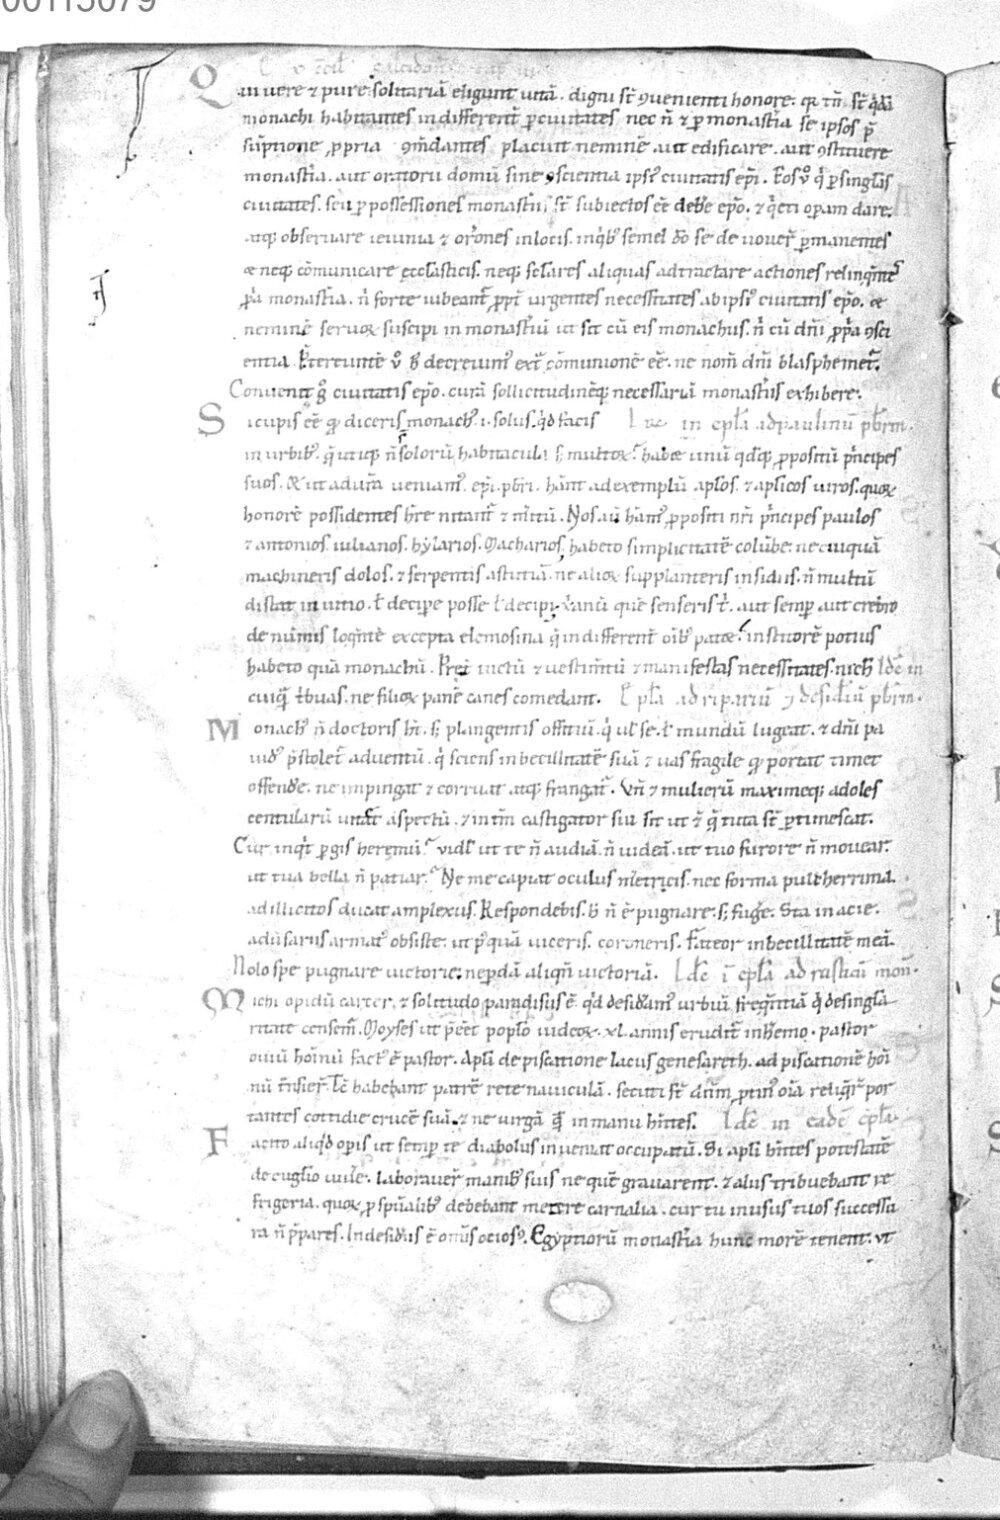 00115079
Qui uere ⁊ pure solitariā eligunt uitā. digni st̄ ꝯuenienti honore. q̄ tn̄ st̄ q̄dā
monachi habitantes indifferent̄ ꝑ ciuitates nec n̄ ⁊ ꝑ monast̄ia se ipsos p̄
sūptione ꝓpria ꝯm̄dantes placuit neminē aut edificare. aut ꝯstituere
monast̄ia. aut oratorii domū sine ꝯscientia ipsi᷒ ciuitatis ep̄i. Eos v̊ q̇ ꝑ singl̄as
ciuitates. seu ꝑ possessiones monast̄ii st̄ subiectos eē debe ep̄o. ⁊ q̇eti oꝑam dare.
atq; obseruare ieiunia ⁊ or̄ones in locis. in q̇b᷒ semel d̄o se deuouer̄ ꝑmanentes
& neq; cōmunicare eccl̄asticis. neq; sc̄lares aliquas adtractare actiones relinq̄ntes
ꝓp̄a monast̄ia. n̄ forte iubeant̄ ꝓpt̄ urgentes necessitates ab ipsi᷒ ciuitatis ep̄o. &
neminē seruoꝝ suscipi in monast̄iū ut sit cū eis monachus. n̄ cū dn̄i ꝓp̄a ꝯsci
entia. P̄tereuntē v̊ h̄ decreuim᷒ ext̄ cōmunionē eē. ne nom̄ dn̄i blasphemet̄.
Conuenit g̊ ciuitatis ep̄o. curā sollicitudinēq; necessariā monast̄iis exhibere.
Si cupis eē qd̄ diceris monach᷒. i. solus. q̇d facis Idē in ep̄la ad paulinū p̄br̄m.
in urbib᷒. q̄ utiq; n̄ solorū habitacula s; multoꝝ. habet unū qd̄q; ꝓpositū p̄ncipes
suos. & ut ad ur̄a ueniam᷒. ep̄i. p̄br̄i. hānt ad exemplū apl̄os. ⁊ apl̄icos uiros. quoꝝ
honorē possidentes h̄re nitant̄ ⁊ m̄itū. Nos aū ham᷒ ꝓpositi nr̄i p̄ncipes paulos
⁊ antonios. iulianos. hylarios. Macharios. habeto simplicitatē colūbe. ne cuiquā
machineris dolos. ⁊ serpentis astutiā. ne alioꝝ supplanteris insidiis. n̄ multū
distat in uitio. ł decipe posse ł decipi. xr̄ianū quē senseris t̄. aut semꝑ aut crebro
de nūmis loq̄ntē excepta elemosina q̄ indifferent̄ oīb᷒ patet. institorē potius
habeto quā monachū. Pret̄ uictū ⁊ uestimtū ⁊ manifestas necessitates. nich̄ Idē in
cuiq̄ tbuas. ne filioꝝ panē canes comedant. ep̄la ad ripariū ⁊ desid̄iū p̄br̄m.
Monach᷒ n̄ doctoris h̄t. s; plangentis offitiū. q̇ ul̄ se. ł mundū lugeat. ⁊ dn̄i pa
uid᷒ p̄stolet̄ aduentū. q̇ sciens inbecillitatē suā ⁊ uas fragile qd̄ portat timet
offende. ne impingat ⁊ corruat atq; frangat̄. Vn̄ ⁊ mulierū maximeq; adoles
centularū uitat aspectū. ⁊ in tm̄ castigator sui sit ut ⁊ q̄ tuta st̄ ꝑtimescat.
Cur inq̇t ꝑgis heremū? vidl̄ ut te n̄ audiā. n̄ uideā. ut tuo furore n̄ mouear.
ut tua bella n̄ patiar. Ne me capiat oculus m̄etricis. nec forma pulcherrima
ad illicitos ducat amplexus. Respondebis. h̄ n̄ ē pugnare. s; fuge. Sta in acie.
adūsariis armat᷒ obsiste. ut p᷒quā uiceris. coroneris. Fateor inbecillitatē meā.
Nolo spe pugnare uictorie. ne ꝑdā aliqn̄ uictoriā. Idē ī ep̄la ad rusticū mon̄.
Michi opidū carcer. ⁊ solitudo paradisus ē. q̇d desid̄am᷒ urbiū freq̄ntiā q̇ de singl̄a
ritate censem̄. Moyses ut p̄eēt popl̄o iudeoꝝ. xl. annis erudit̄ in h̄emo. pastor
ouiū hoīnū fact᷒ ē pastor. Apl̄i de piscatione lacus genesareth. ad piscationē hoī
nū t̄nsier̄. Tc̄ habebant patrē rete nauiculā. secuti st̄ dn̄m ꝓtin᷒ oīa reliq̄r̄ por
tantes cottidie crucē suā. ⁊ ne uirgā q̄ in manu hn̄tes. Idē in eadē ep̄la
Facito aliq̇d oꝑis ut semꝑ te diabolus inueniat occupatū. Si apl̄i hn̄tes potestatē
de euglio uiue. laborauer̄ manib᷒ suis ne quē grauarent. ⁊ aliis tribuebant re
frigeria. quoꝝ ꝓ sp̄ualib᷒ debebant metere carnalia. cur tu in usus tuos successu
ra n̄ p̄pares. In desid̄iis ē om̄s ocios᷒. Egyptiorū monast̄ia hunc morē tenent. vt